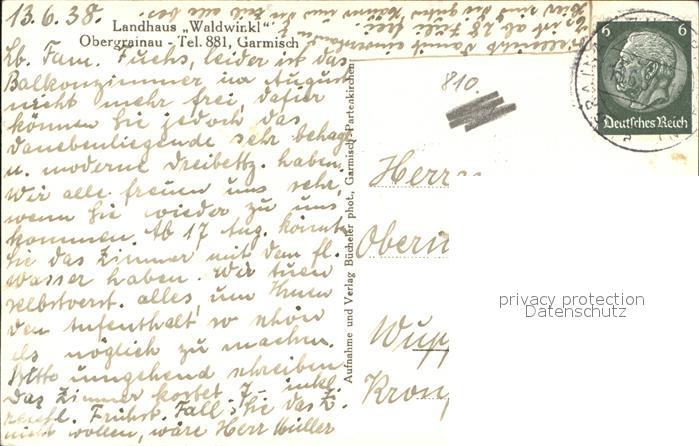 13.6.38.
Landhaus „Waldwinkl"
Obergrainau - Tel. 881, Garmisch
Lb. Fam. Fuchs, leider ist das
Balkonzimmer im August
nicht mehr frei, dafür
können Sie jedoch das
danebenliegende sehr behagl.
u. moderne Dreibettz. haben.
Wir alle freuen uns sehr,
wenn Sie wieder zu uns
kommen. Ab 17 Aug. könnten
Sie das Zimmer mit dem fl.
Wasser haben. Wir tuen
selbstverst. alles, um Ihnen
den Aufenthalt so schön
als möglich zu machen.
Bitte umgehend schreiben
Das Zimmer kostet 7.- inkl.
reichl. Frühst. Falls Sie das Z.
nicht wollen, wäre Herr Müller
vielleicht damit einverstanden
Aufnahme und Verlag Bücheler phot., Garmisch-Partenkirchen
810.
6 6
Deutsches Reich
Herrn
Wupp
privacy protection
Datenschutz